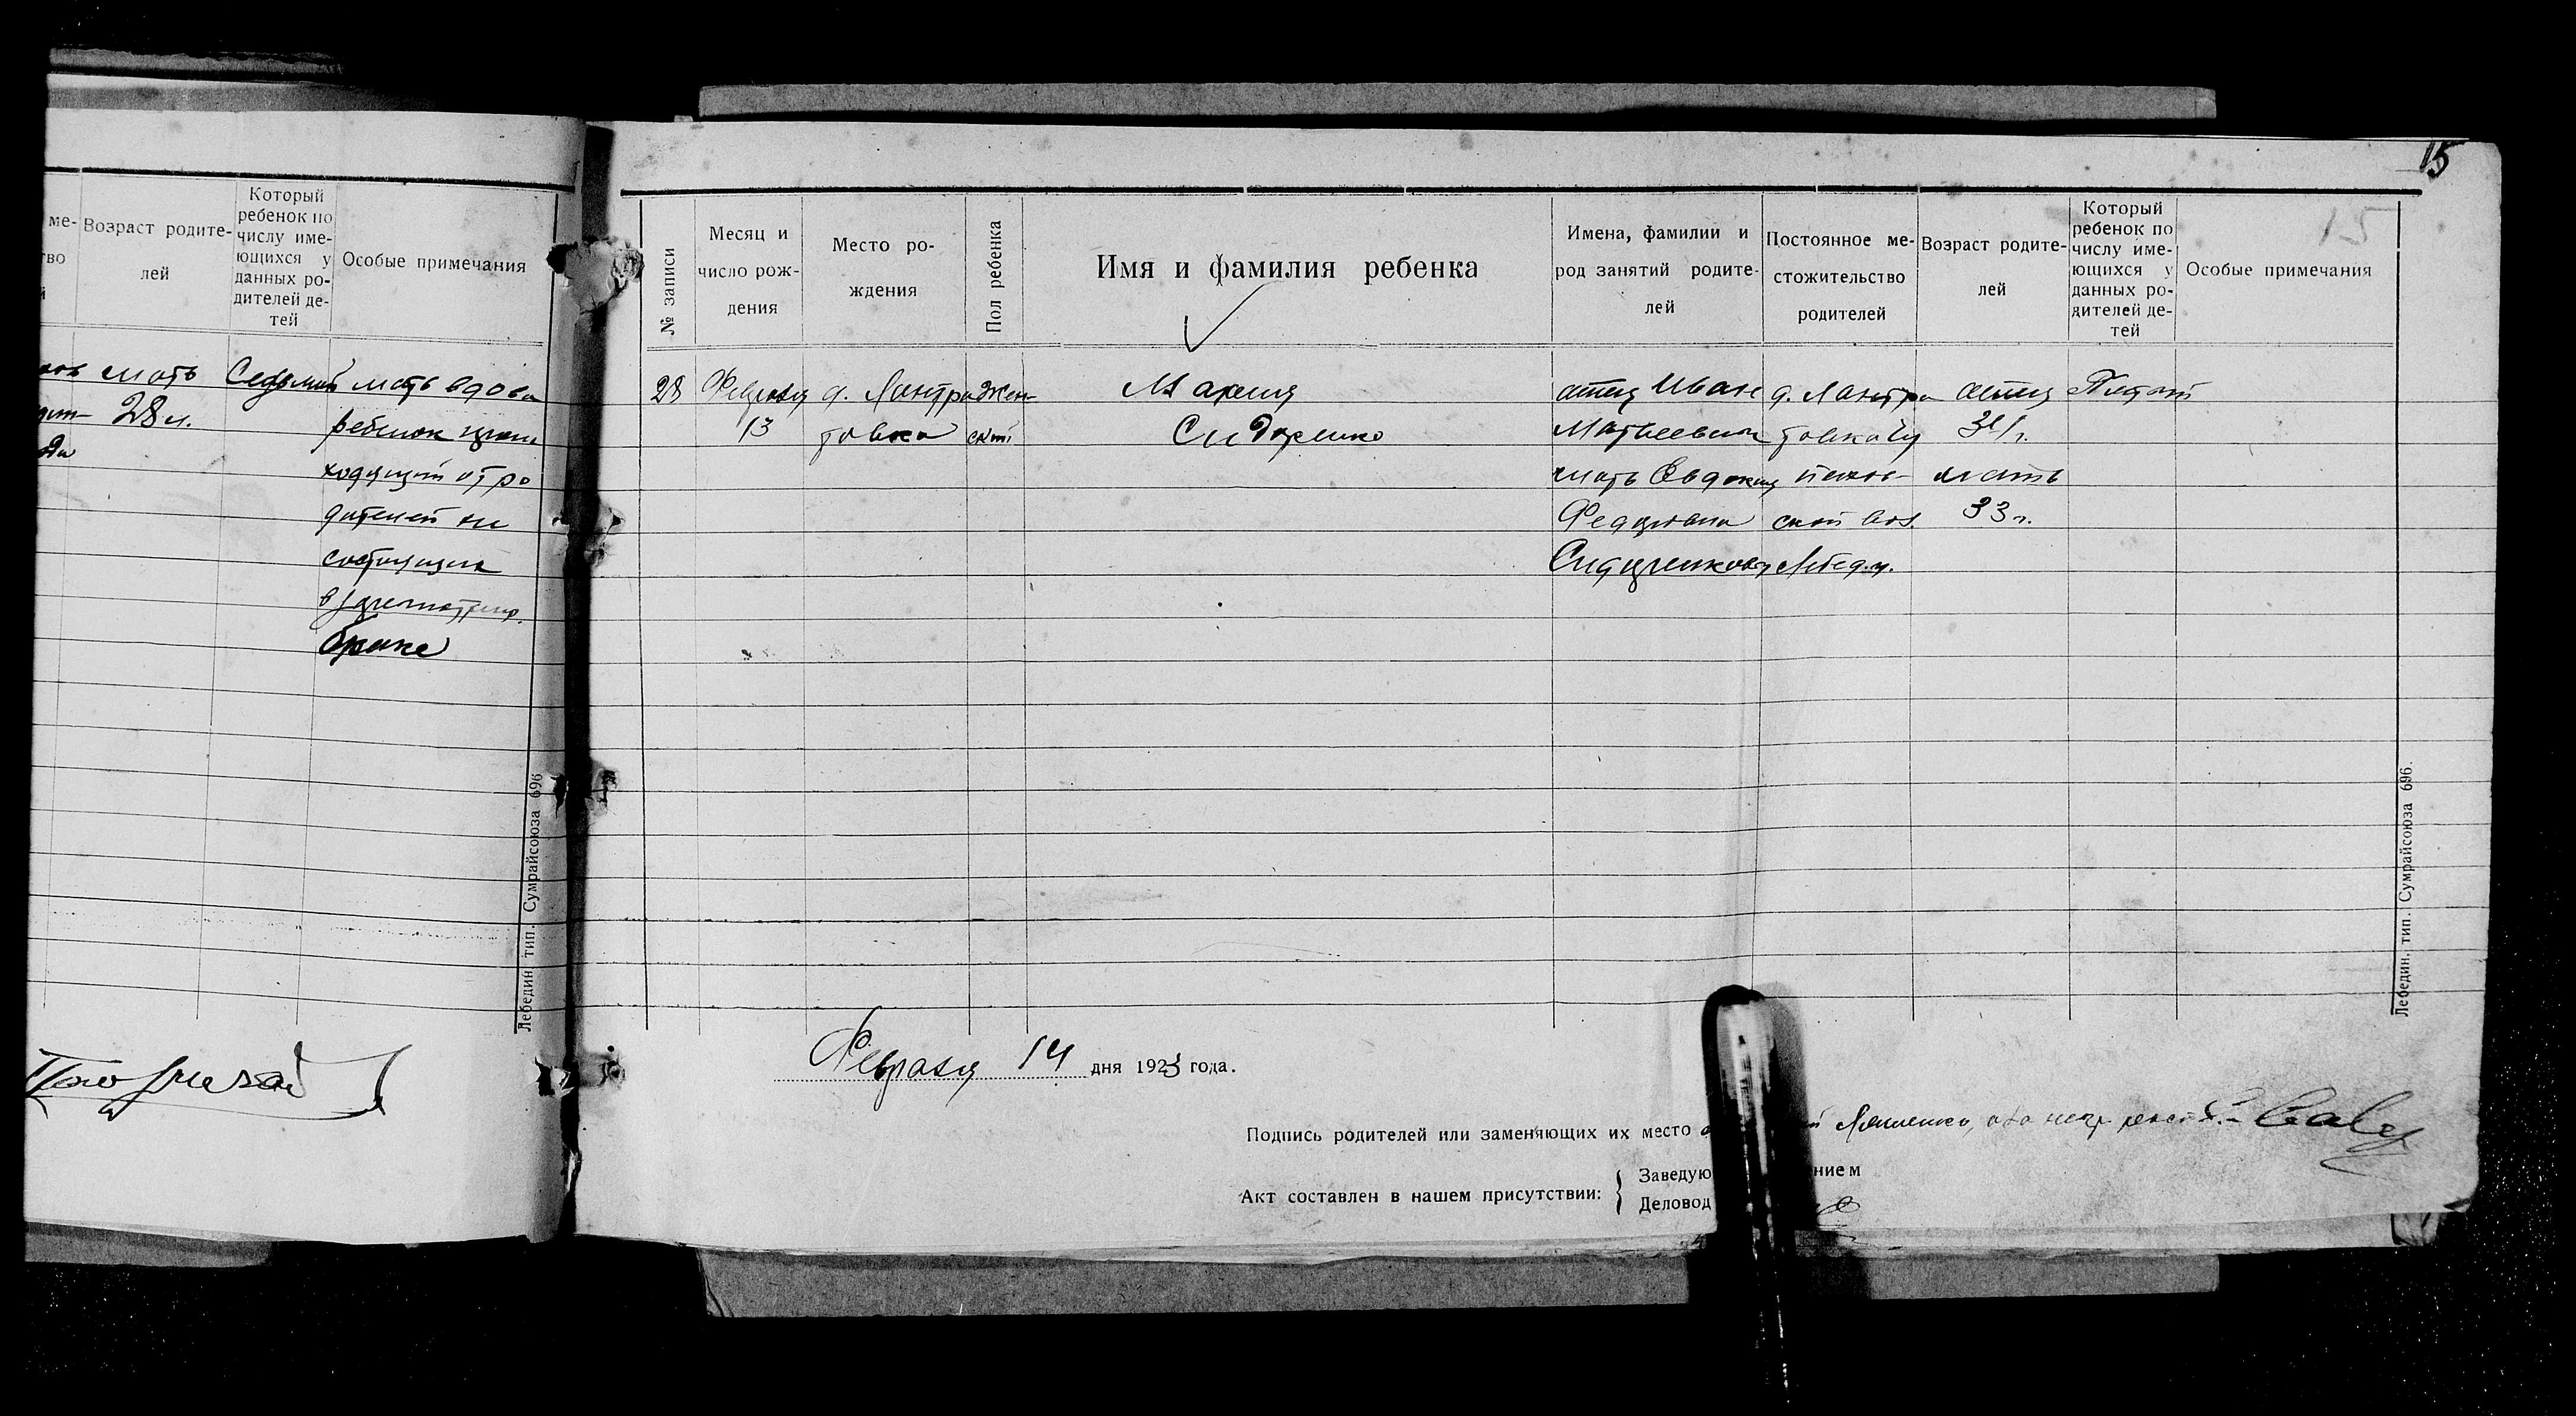 15
15
ме-
тво
й
Возраст родите-
лей
Который
ребенок по
числу име-
ющихся у
данных ро-
дителей де-
тей
Особые примечания
мать
28 л.
Седьмой
мать вдова
ребенок
ходящий от ро
дителей не
состоящих
в
браке
Лебедин тип. Сумрайсоюза 696
№ записи
Месяц и
число рож-
дения
Место ро-
ждения
Пол ребенка
Имя и фамилия ребенка
Имена, фамилии и
род занятий родите-
лей
Постоянное ме-
стожительство
родителей
Возраст родите-
лей
Который
ребенок по
числу име-
ющихся у
данных ро-
дителей де-
тей
Особые примечания
28
Февраля
13
д. Лантра
товка
Жен-
ский
Мария
Сидоренко
отец Иван
Матвеевич
мать Евдокия
Федоровна
Сидоренковы
д. Лантра
товка
ской вол.
Лебед. у.
отец
мать
33 г.
Пятый
Лебедин. тип. Сумрайсоюза 696.
Февраля 14 дня 1923 года.
Подпись родителей или заменяющих их место
Акт составлен в нашем присутствии:
Заведую нием
Деловод